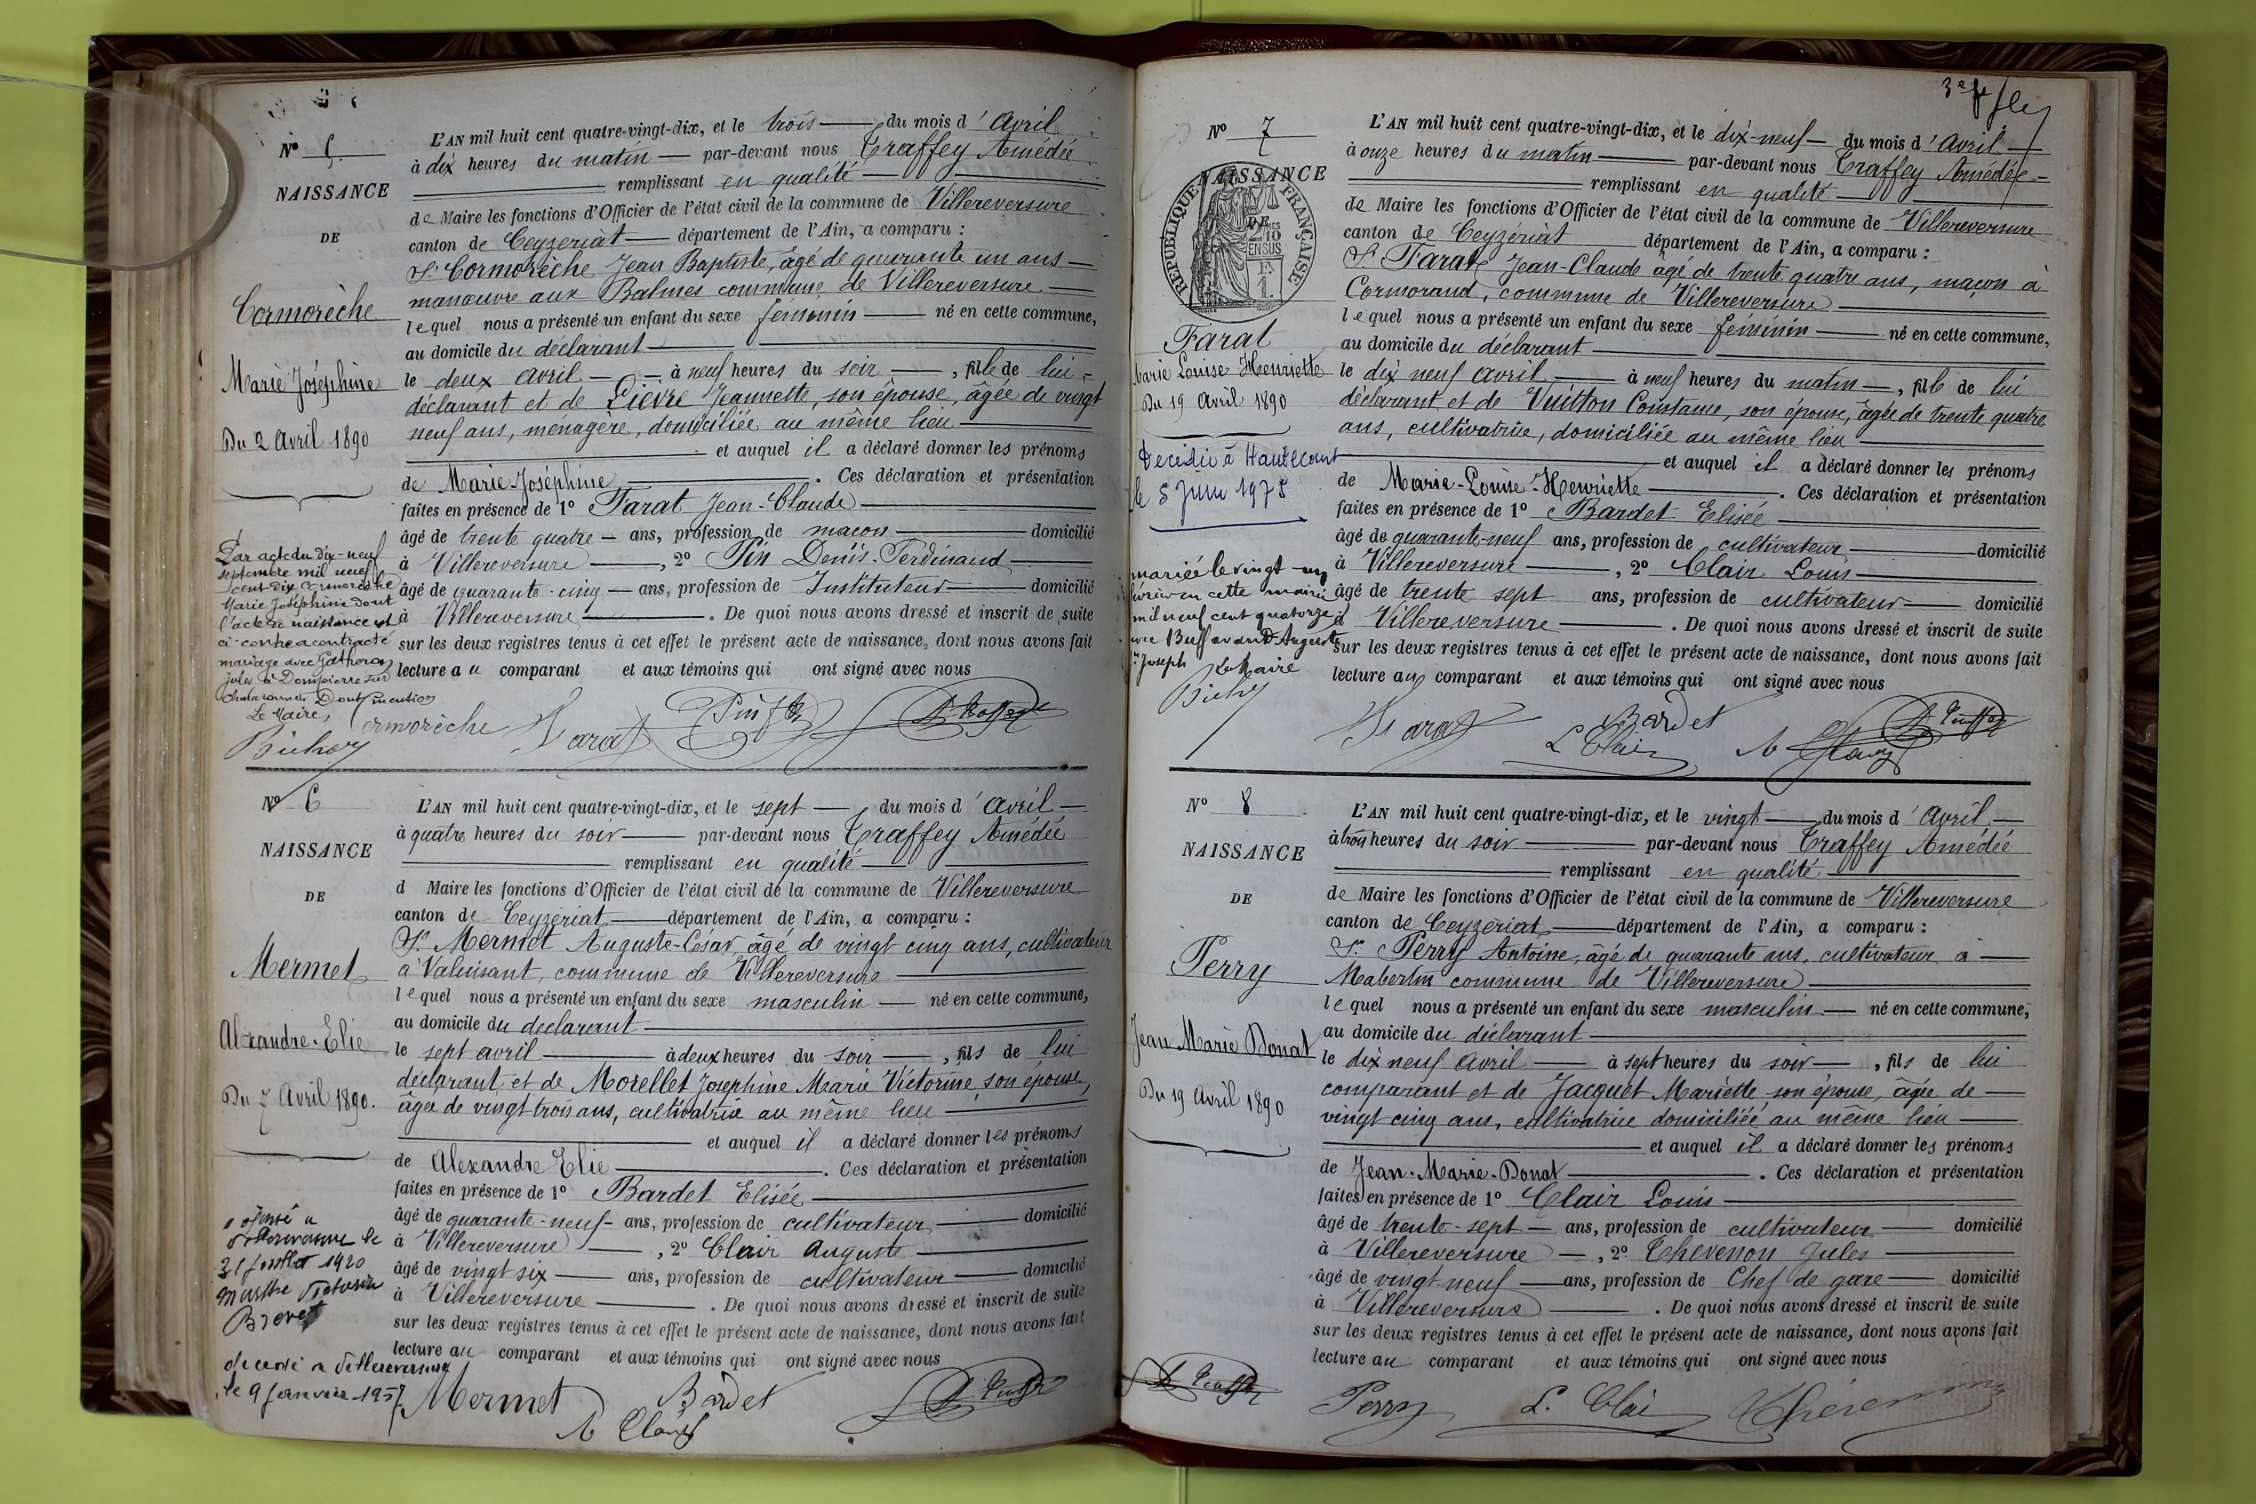 N° 5
NAISSANCE
DE
Cormorèche
Marie Joséphine
Du 2 Avril 1890
Par acte du dix-neuf
septembre mil neuf
cent dix Cormorèche
Marie Joséphine dont
l'acte de naissance est
ci-contre a contracté
mariage avec
Jules à Dompierre sur
Chalaronne. Dont mention
Le Maire,
L'AN mil huit cent quatre-vingt-dix, et le trois du mois d'Avril
à dix heures du matin par-devant nous Traffey Amédée
remplissant en qualité
de Maire les fonctions d'Officier de l'état civil de la commune de Villereversure
canton de Ceyzériat département de l'Ain, a comparu :
Sr Cormorèche Jean Baptiste, âgé de quarante un ans
manœuvre aux Balmes commune de Villereversure
lequel nous a présenté un enfant du sexe féminin né en cette commune,
au domicile du déclarant
le deux avril à neuf heures du soir, fille de lui
déclarant et de Lièvre Jeannette, son épouse, âgée de vingt
neuf ans, ménagère, domiciliée au même lieu
et auquel il a déclaré donner les prénoms
de Marie-Joséphine. Ces déclaration et présentation
faites en présence de 1° Farat Jean-Claude
âgé de trente quatre ans, profession de maçon domicilié
à Villereversure, 2° Pin Denis-Ferdinand
âgé de quarante-cinq ans, profession de Instituteur domicilié
à Villereversure. De quoi nous avons dressé et inscrit de suite
sur les deux registres tenus à cet effet le présent acte de naissance, dont nous avons fait
lecture au comparant et aux témoins qui ont signé avec nous
Cormorèche Farat Pin
N° 6
NAISSANCE
DE
Mermet
Alexandre-Elie
Du 7 Avril 1890.
épousé à
Villereversure le
31 juillet 1920
Marthe Victorine
Brevet
décédé à Villereversure
le 9 janvier 1957
L'AN mil huit cent quatre-vingt-dix, et le sept du mois d'avril
à quatre heures du soir par-devant nous Traffey Amédée
remplissant en qualité
d Maire les fonctions d'Officier de l'état civil de la commune de Villereversure
canton de Ceyzériat département de l'Ain, a comparu :
Sr Mermet Auguste-César, âgé de vingt cinq ans, cultivateur
à Valuisant, commune de Villereversure
lequel nous a présenté un enfant du sexe masculin né en cette commune,
au domicile du déclarant
le sept avril à deux heures du soir, fils de lui
déclarant et de Morellet Joséphine Marie Victorine son épouse,
âgée de vingt trois ans, cultivatrice au même lieu
et auquel il a déclaré donner les prénoms
de Alexandre Elie. Ces déclaration et présentation
faites en présence de 1° Bardet Elisée
âgé de quarante-neuf ans, profession de cultivateur domicilié
à Villereversure, 2° Clair Auguste
âgé de vingt six ans, profession de cultivateur domicilié
à Villereversure. De quoi nous avons dressé et inscrit de suite
sur les deux registres tenus à cet effet le présent acte de naissance, dont nous avons fait
lecture au comparant et aux témoins qui ont signé avec nous
Mermet Bardet
A Clair
N° 7
NAISSANCE
DE
RÉPUBLIQUE FRANÇAISE
Farat
Marie Louise Henriette
Du 19 Avril 1890
Décédée à Hautecourt
le 5 Juin 1975
mariée le vingt-un
février en cette mairie
mil neuf cent quatorze
avec Buffavand Auguste
Joseph Le Maire
L'AN mil huit cent quatre-vingt-dix, et le dix-neuf du mois d'Avril
à onze heures du matin par-devant nous Traffey Amédée
remplissant en qualité
de Maire les fonctions d'Officier de l'état civil de la commune de Villereversure
canton de Ceyzériat département de l'Ain, a comparu :
Sr Farat Jean-Claude âgé de trente quatre ans, maçon à
Cormorand, commune de Villereversure
lequel nous a présenté un enfant du sexe féminin né en cette commune,
au domicile du déclarant
le dix neuf avril à neuf heures du matin, fille de lui
déclarant et de Vuitton Constance, son épouse, âgée de trente quatre
ans, cultivatrice, domiciliée au même lieu
et auquel il a déclaré donner les prénoms
de Marie-Louise-Henriette. Ces déclaration et présentation
faites en présence de 1° Bardet Elisée
âgé de quarante-neuf ans, profession de cultivateur domicilié
à Villereversure, 2° Clair Louis
âgé de trente sept ans, profession de cultivateur domicilié
à Villereversure. De quoi nous avons dressé et inscrit de suite
sur les deux registres tenus à cet effet le présent acte de naissance, dont nous avons fait
lecture au comparant et aux témoins qui ont signé avec nous
Farat Bardet
L Clair
N° 8
NAISSANCE
DE
Perry
Jean Marie Donat
Du 19 Avril 1890
L'AN mil huit cent quatre-vingt-dix, et le vingt du mois d'Avril
à trois heures du soir par-devant nous Traffey Amédée
remplissant en qualité
de Maire les fonctions d'Officier de l'état civil de la commune de Villereversure
canton de Ceyzériat département de l'Ain, a comparu :
Sr Perry Antoine, âgé de quarante ans, cultivateur à
Mabertin commune de Villereversure
lequel nous a présenté un enfant du sexe masculin né en cette commune,
au domicile du déclarant
le dix neuf avril à sept heures du soir, fils de lui
comparant et de Jacquet Mariette, son épouse, âgée de
vingt cinq ans, cultivatrice domiciliée au même lieu
et auquel il a déclaré donner les prénoms
de Jean-Marie-Donat. Ces déclaration et présentation
faites en présence de 1° Clair Louis
âgé de trente-sept ans, profession de cultivateur domicilié
à Villereversure, 2° Thevenon Jules
âgé de vingt neuf ans, profession de Chef de gare domicilié
à Villereversure. De quoi nous avons dressé et inscrit de suite
sur les deux registres tenus à cet effet le présent acte de naissance, dont nous avons fait
lecture au comparant et aux témoins qui ont signé avec nous
Perry L. Clair Thevenon